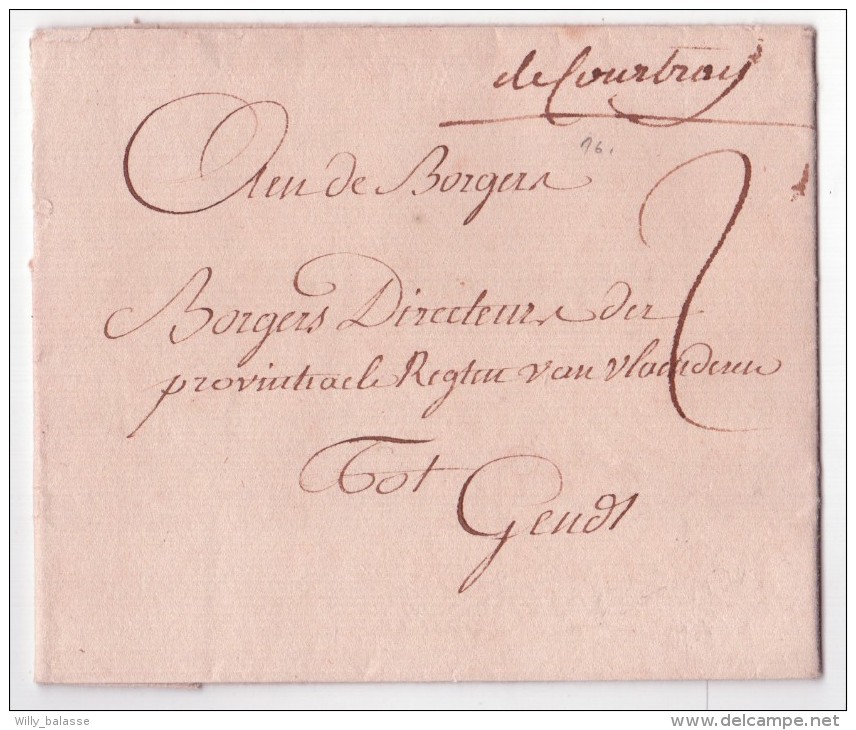 de Courtray
16.
Aen de Borgers
2
Borgers Directeurs der
provintiaele Regten van Vlaenderen
Tot
Gendt
Willy_balasse
delcampe.net